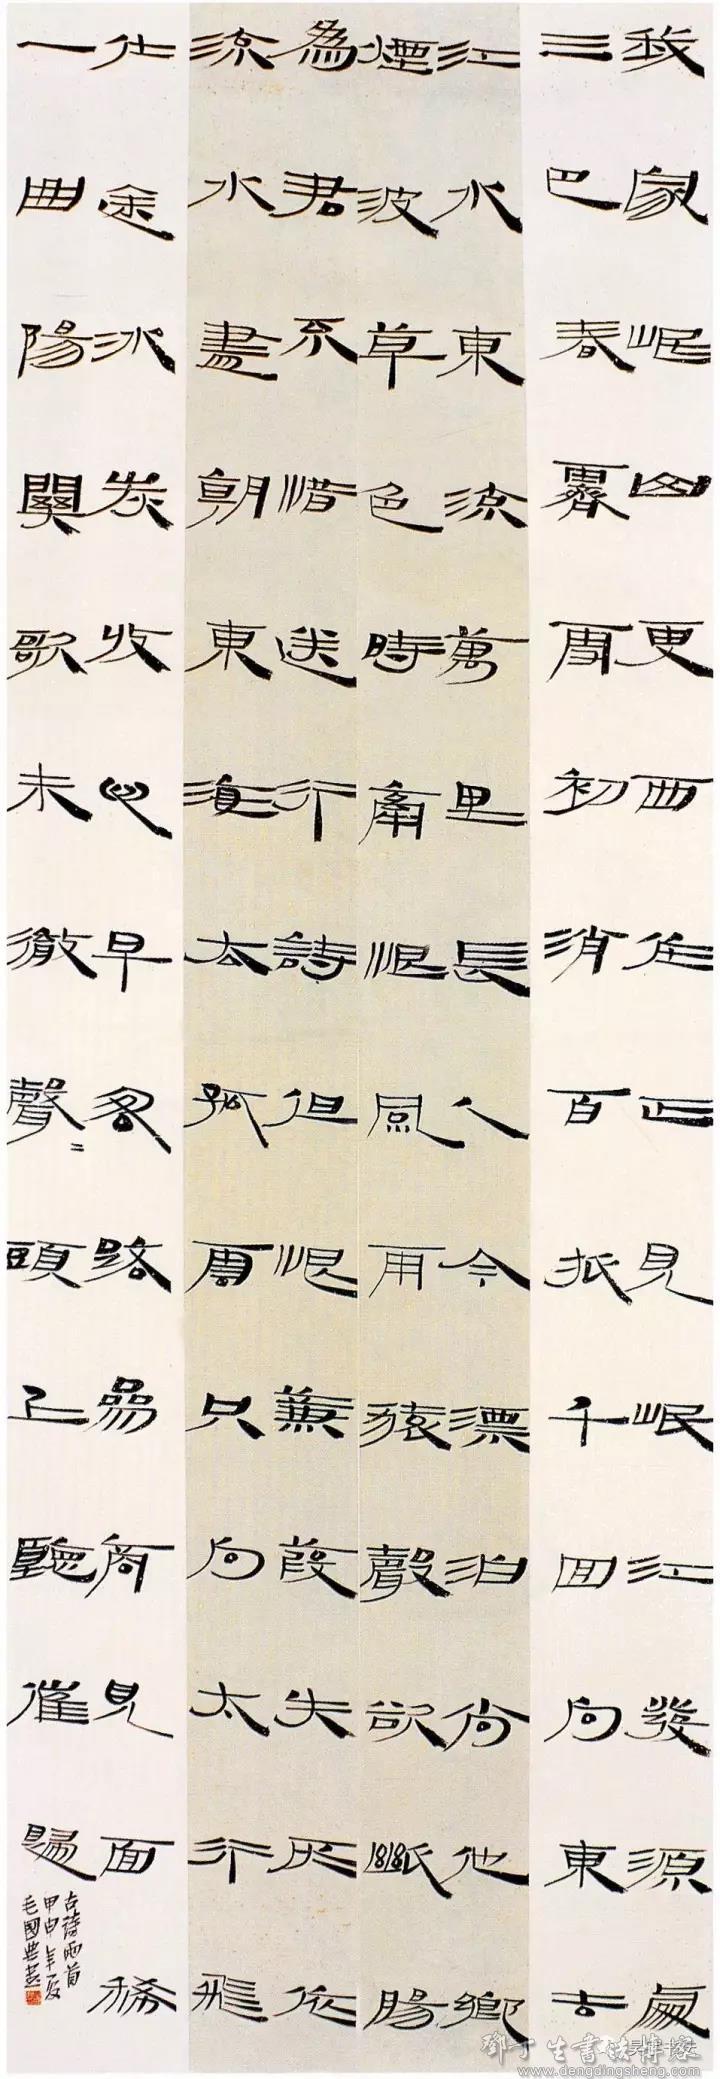 我家岷山更西住正見岷江發源處
三巴春霽雪初消百折千回向東去
江水東流萬里長人今漂泊尚他鄉
煙波草色時牽恨風雨猿聲欲斷腸
為君不惜送行詩但恨蒹葭失所依
流水盡朝東海去孤雲只向太行飛
仕途冰炭收心早客路參商見面稀
一曲陽關歌未徹聲〻頭上聽催歸
古詩兩首
甲申年夏
毛國典書
鄧丁生書法博客
www.dengdingsheng.com